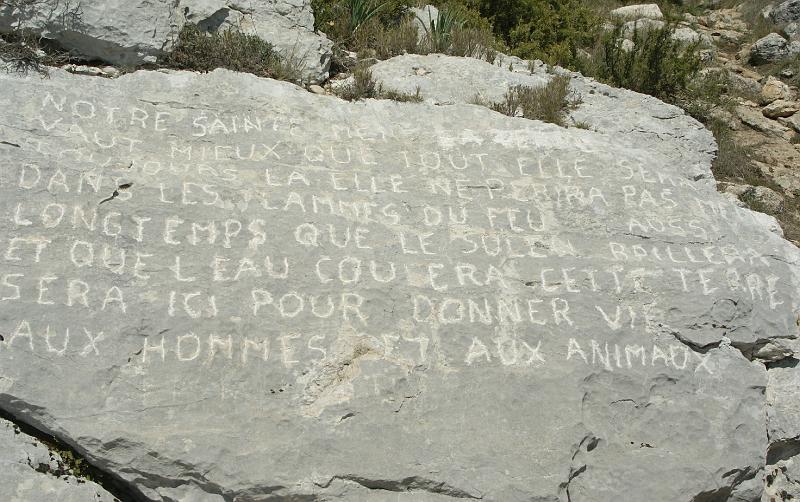 NOTRE SAINTE MERE LA TERRE
VAUT MIEUX QUE TOUT ELLE SERA
TOUJOURS LA ELLE NE PERIRA PAS MEME
DANS LES FLAMMES DU FEU AUSSI
LONGTEMPS QUE LE SOLEIL BRILLERA
ET QUE L'EAU COULERA CETTE TERRE
SERA ICI POUR DONNER VIE
AUX HOMMES ET AUX ANIMAUX